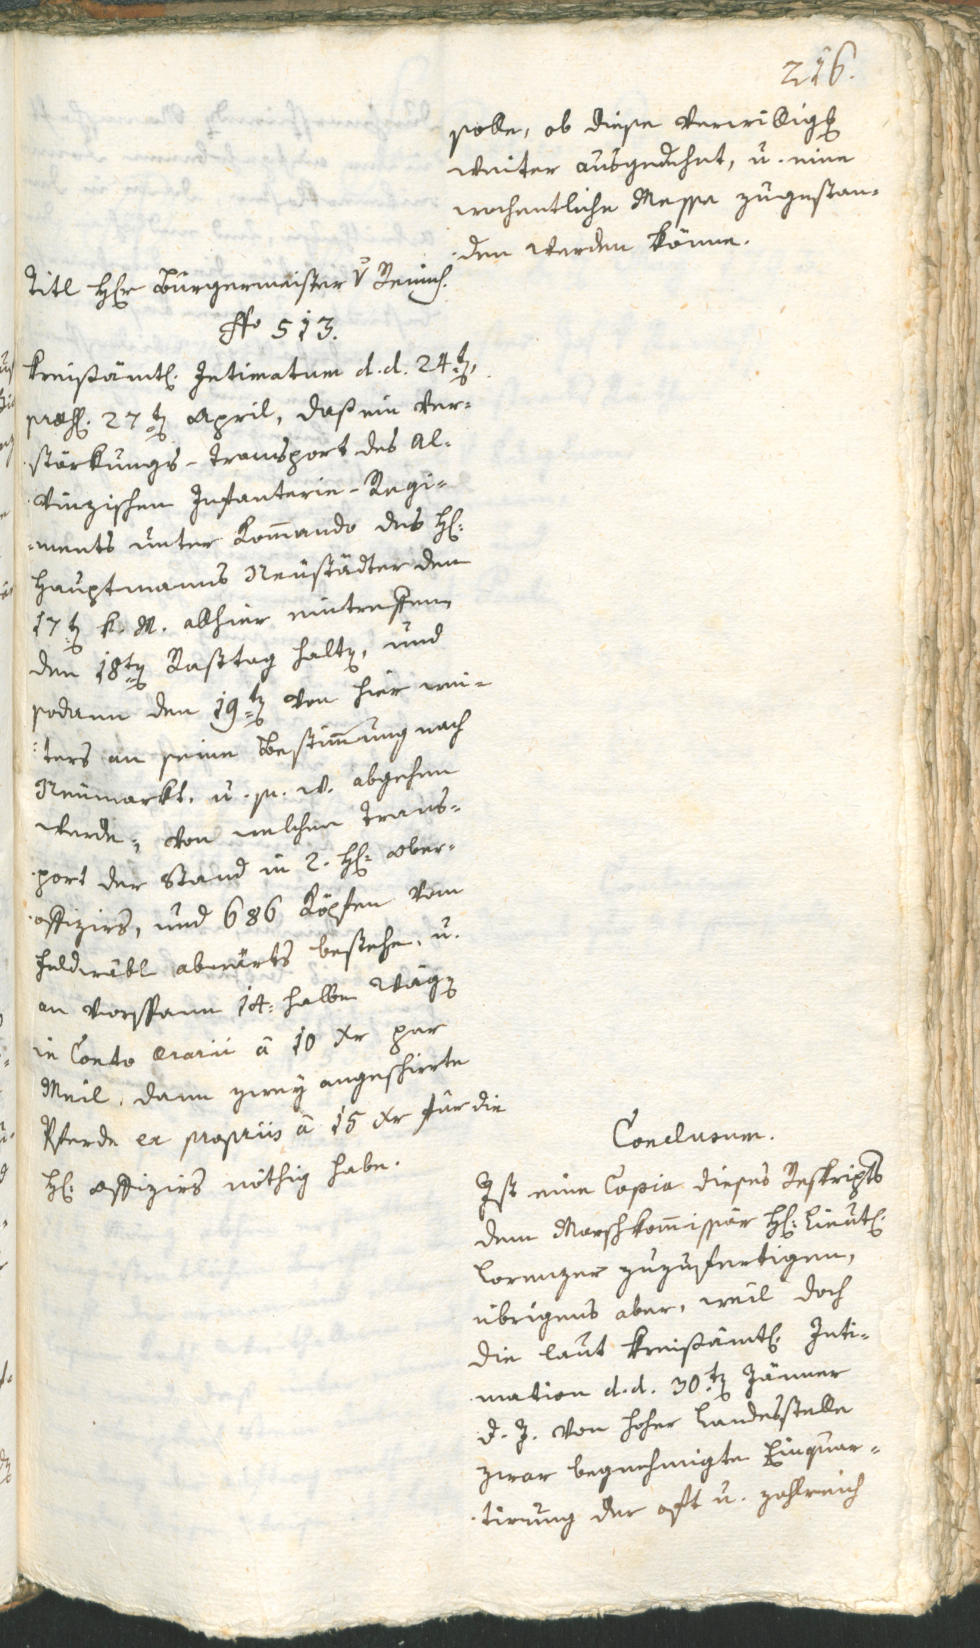 216.
solle, ob diese Verwillig[un]g
weiter ausgedehnt, u. eine
wochentliche Messe zugestan-
den werden könne.
Titl H[er]r Bürgermeister v Reinis[ch].
No 513.
Kreisämtl. Intimatum d. d. 24t[en],
præs. 27t[en] April, daß ein Ver-
stärkungs-Transport des Al-
vinzischen Infanterie-Regi-
ments unter Kom̄ando des H:
Hauptmanns Neustädter den
17t[en] k. M. allhier eintreffen,
den 18t[en] Rasttag halt[en], und
sodann den 19t[en] von hier wei-
ters an seine Bestim̄ung nach
Neumarkt. u. s. w. abgehen
werde, von welchen Trans-
port der Stand in 2. H: Ober-
offiziers, und 686 Köpfen vom
Feldwäbl abwärts bestehe, u.
an Vorspann 14. halbe Wäg[en]
in Conto ærarii â 10 xr per
Meil, dann zwey angeschirrte
Pferde ex propriis â 15 xr für die
H: Offiziers nöthig habe.
Conclusum.
Ist eine Copia dieses Reskripts
dem Marschkom̄issär H: Lieut:
Lorenzer zuzufertigen,
übrigens aber, weil doch
die laut kreisämtl. Inti-
mation d. d. 30t[en] Jänner
d. J. von hoher Landesstelle
zwar begnehmigte Einquar-
tirung der oft u. zahlreich